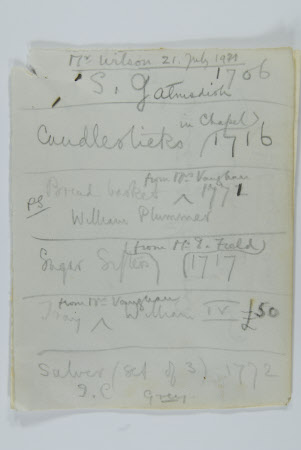 Mr Wilson 21. July 1981
S. Gatmedish 1706
in Chapel
Candlesticks 1716
from Mrs Vaughan
PS Bread basket ^ 1771
William Plummer
(from Mr T. Field)
Suger Sifter 1717
from Mrs Vaughan
Tray ^ William IV £50
Salver (set of 3) 1772
Grey